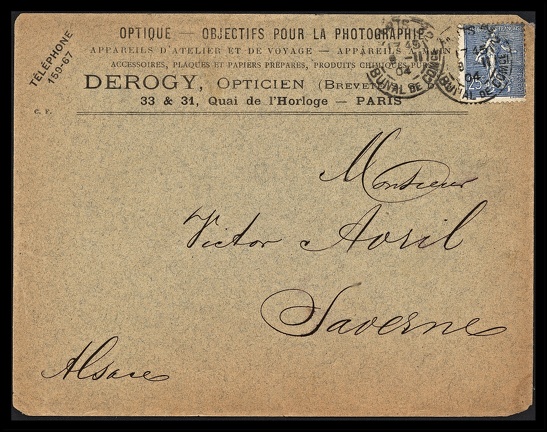 TÉLÉPHONE
159-67
OPTIQUE — OBJECTIFS POUR LA PHOTOGRAPHIE
APPAREILS D'ATELIER ET DE VOYAGE — APPAREILS A MAIN
ACCESSOIRES, PLAQUES ET PAPIERS PRÉPARÉS, PRODUITS CHIMIQUES PURS
DEROGY, OPTICIEN (BREVETÉ)
33 & 31, Quai de l'Horloge — PARIS
C. F.
17 45
04
17 45
04
25
Monsieur
Victor Avril
Saverne
Alsace